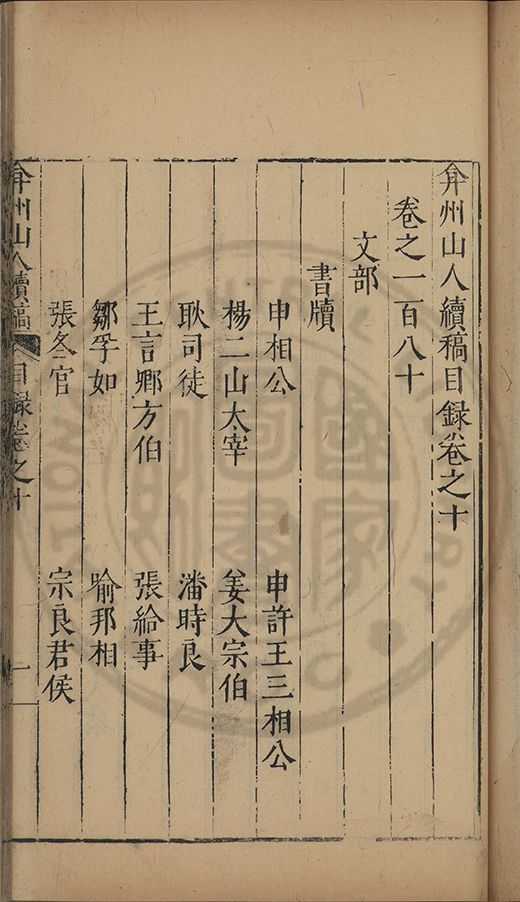 弇州山人續稿目録卷之十
卷之一百八十
文部
書牘
申相公 申許王三相公
楊二山太宰 姜大宗伯
耿司徒 潘時良
王言卿方伯 張給事
鄒孚如 喻邦相
張冬官 宗良君侯
弇州山人續稿 目録卷之十 一